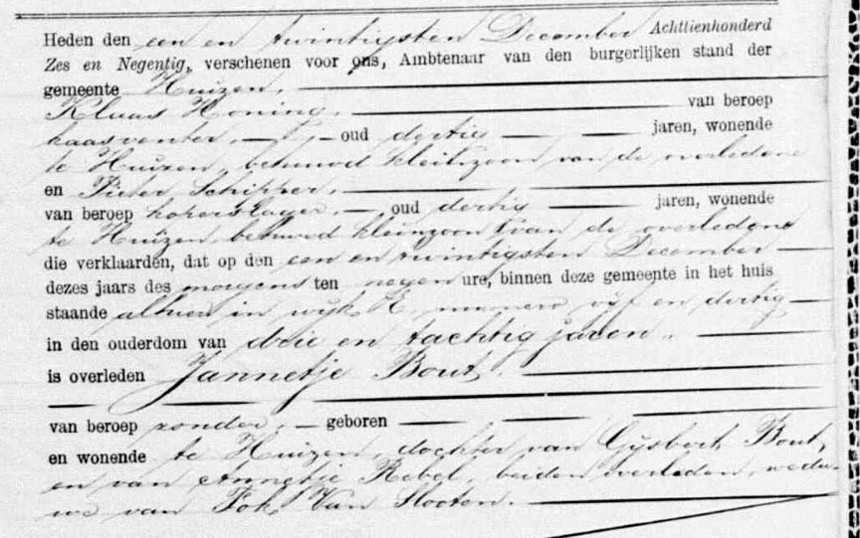 Heden den een en twintigsten December Achttienhonderd
Zes en Negentig, verschenen voor ons, Ambtenaar van den burgerlijken stand der
gemeente Huizen,
Klaas Honing, van beroep
kaasventer, oud dertig jaren, wonende
te Huizen, behuwd kleinzoon van de overledene
en Pieter Schipper,
van beroep koperslager, oud dertig jaren, wonende
te Huizen, behuwd kleinzoon van de overledene
die verklaarden, dat op den een en twintigsten December
dezes jaars des morgens ten negen ure, binnen deze gemeente in het huis
staande alhier in wijk E, numero vijf en dertig
in den ouderdom van drie en tachtig jaren
is overleden Jannetje Bout,
van beroep zonder, geboren
en wonende te Huizen, dochter van Gijsbert Bout,
en van Annetje Rebel, beiden overleden, wedu-
we van Fok Van Slooten.